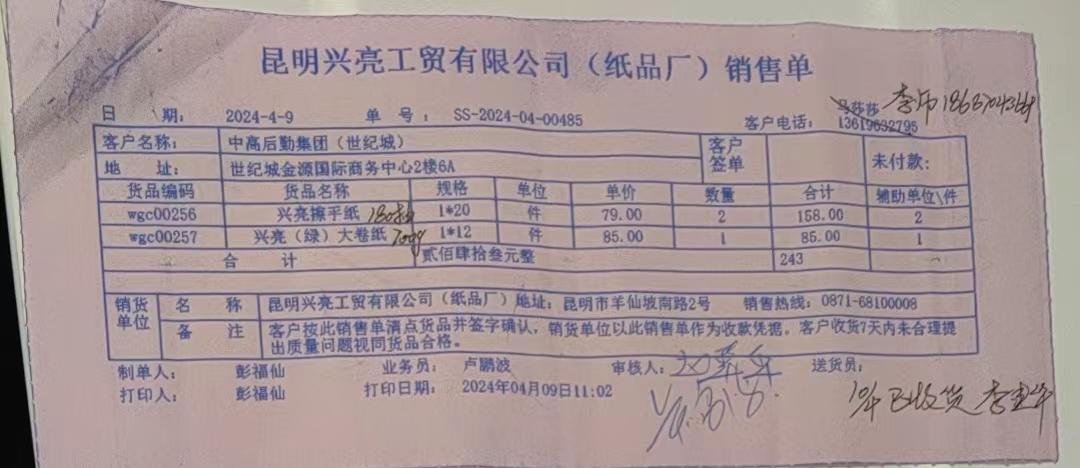 昆明兴亮工贸有限公司（纸品厂）销售单
日 期： 2024-4-9 单 号： SS-2024-04-00485 客户电话： 13619632795
客户名称： 中高后勤集团（世纪城） 客户签单 未付款：
地 址： 世纪城金源国际商务中心2楼6A
货品编码 货品名称 规格 单位 单价 数量 合计 辅助单位\件
wgc00256 兴亮擦手纸 1*20 件 79.00 2 158.00 2
wgc00257 兴亮（绿）大卷纸 700g 1*12 件 85.00 1 85.00 1
合 计 贰佰肆拾叁元整 243
销货单位 名 称 昆明兴亮工贸有限公司（纸品厂）地址：昆明市羊仙坡南路2号 销售热线：0871-68100008
备 注 客户按此销售单清点货品并签字确认，销货单位以此销售单作为收款凭据。客户收货7天内未合理提
出质量问题视同货品合格。
制单人： 彭福仙 业务员： 卢鹏波 审核人： 送货员：
打印人： 彭福仙 打印日期： 2024年04月09日11:02
10/4 已收货